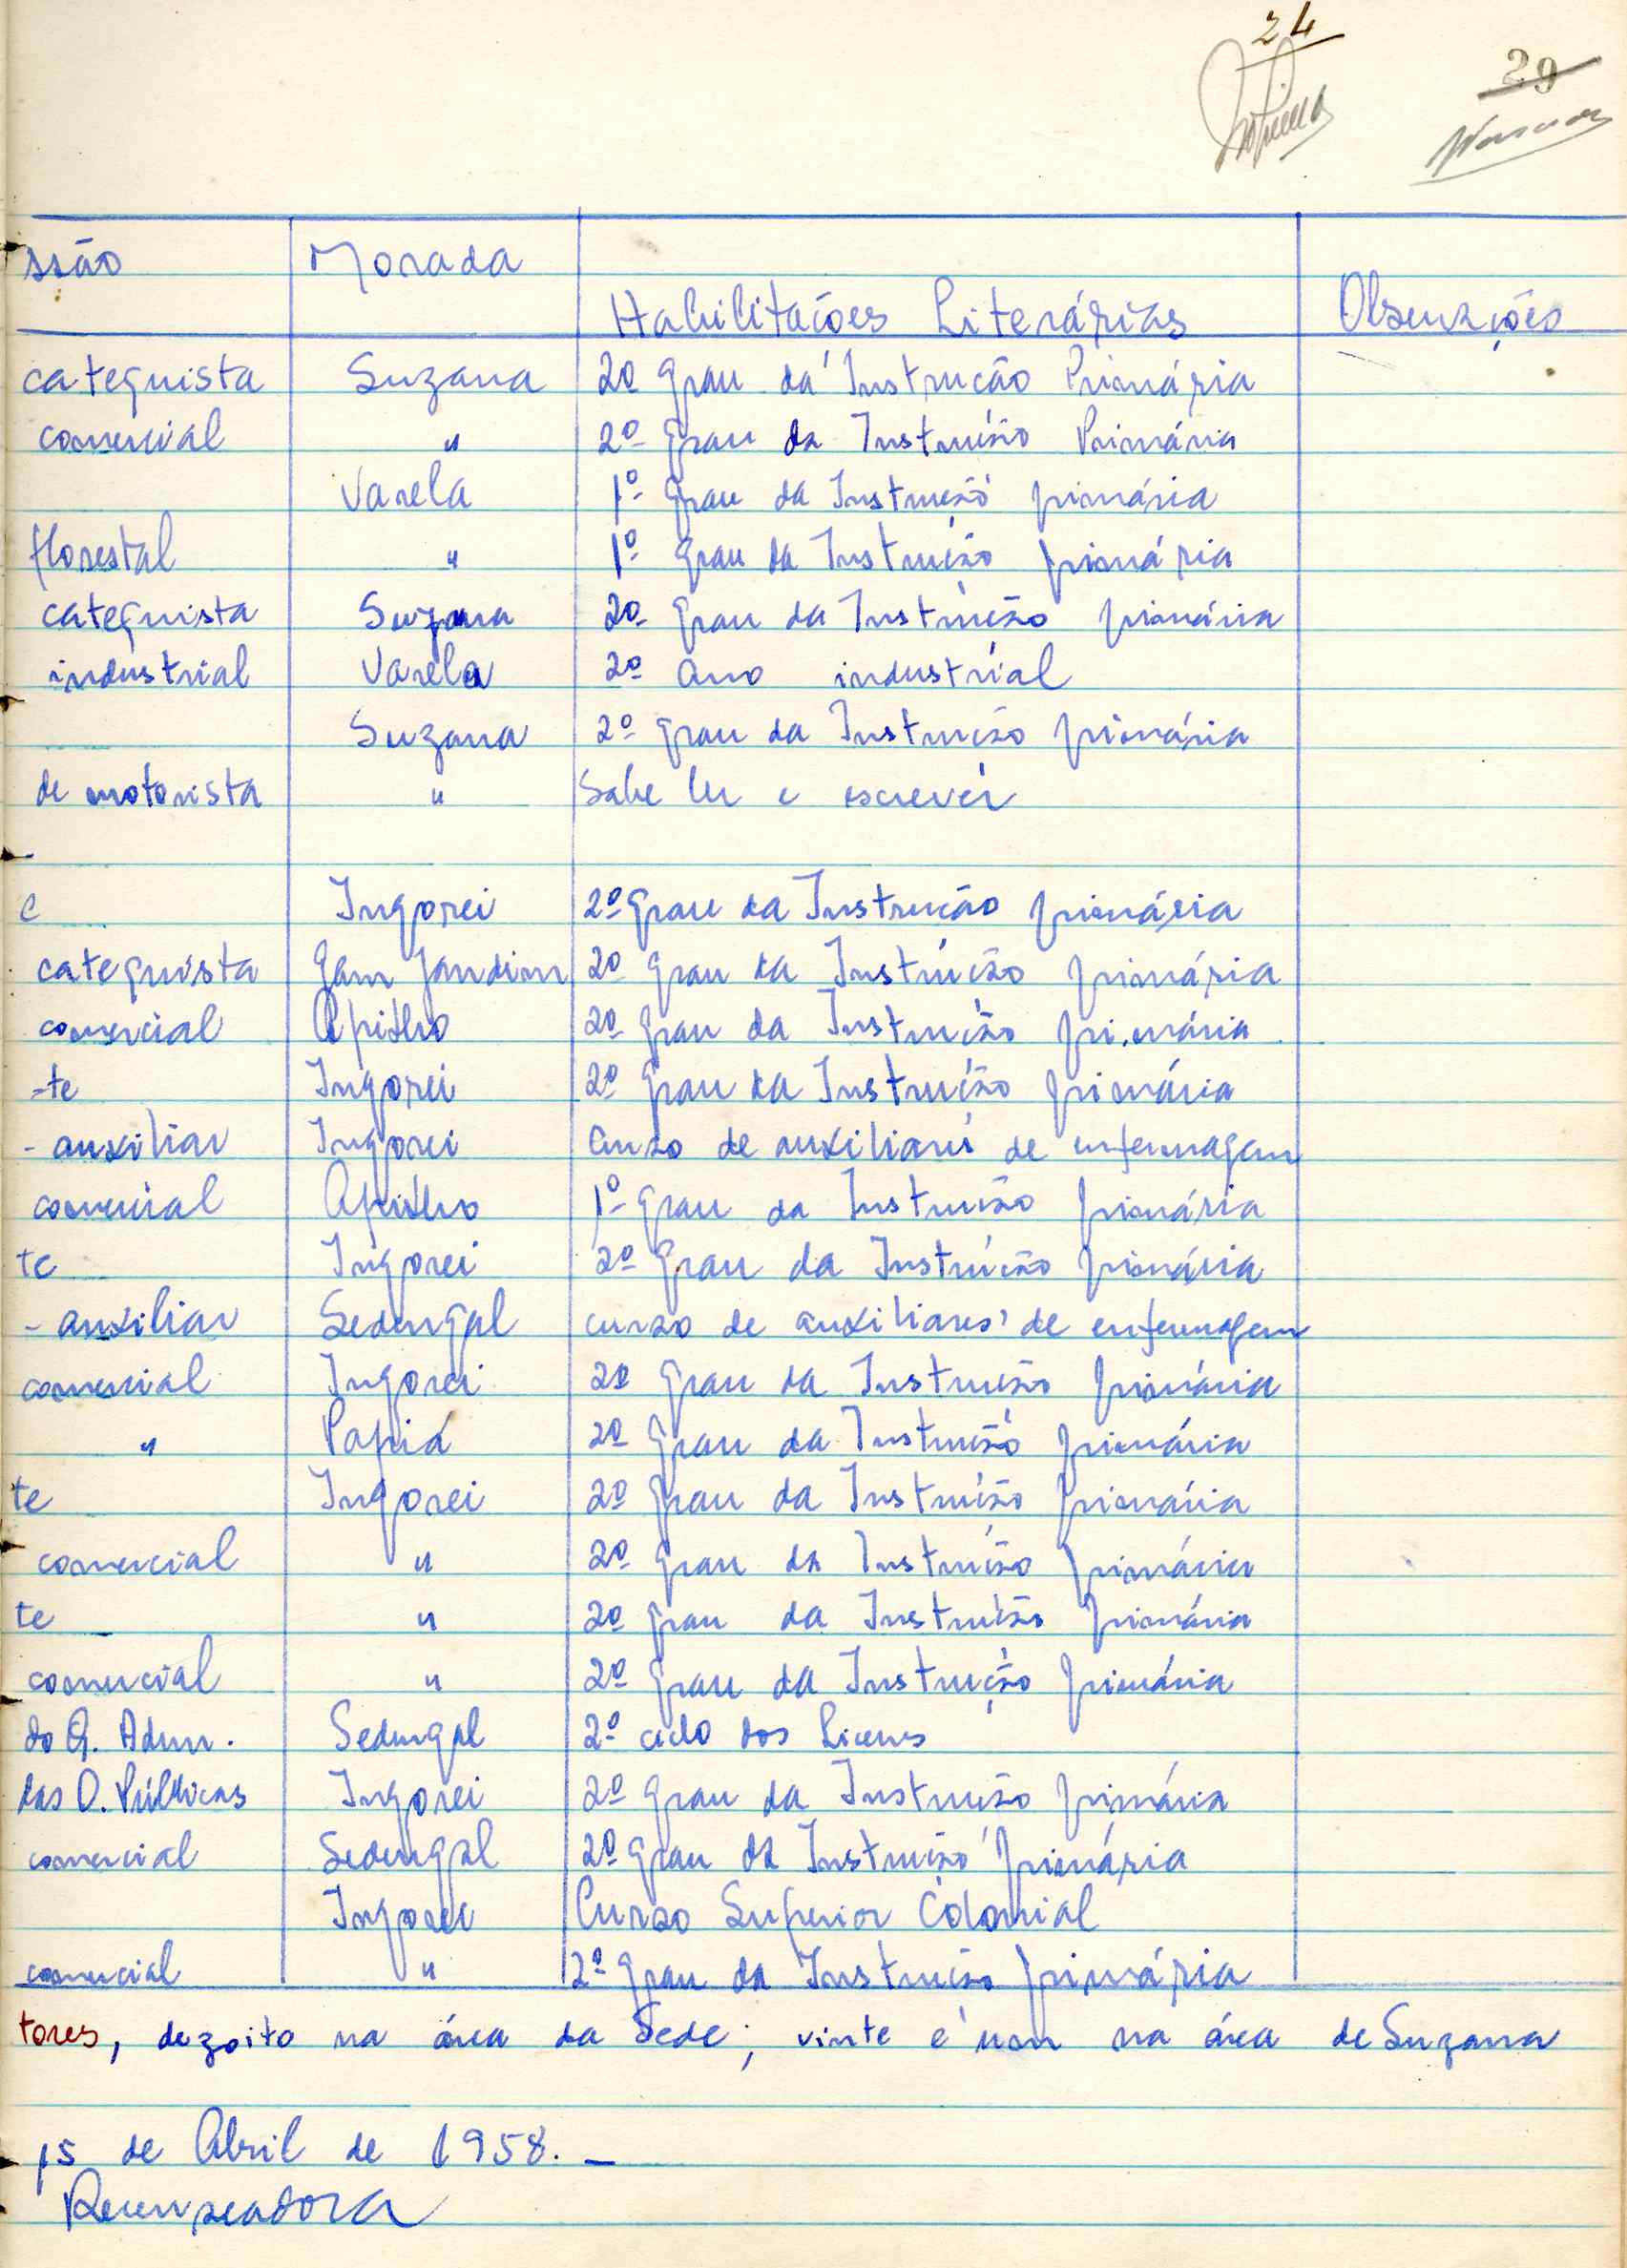 24
29
ssão Morada
Habilitações Literárias Observações
catequista Suzana 2º grau da Instrucão Primária
comercial " 2º grau da Instrução Primária
Varela 1º grau da Instrução primária
florestal " 1º grau da Instrução primária
catequista Suzana 2º grau da Instrução primária
industrial Varela 2º ano industrial
Suzana 2º grau da Instrução primária
de motorista " Sabe ler e escrever
Ingorei 2º grau da Instrução primária
catequista Gam Jandim 2º grau da Instrução primária
comercial Apilho 2º grau da Instrução primária
-te Ingorei 2º grau da Instrução primária
- auxiliar Ingorei Curso de auxiliares de enfermagem
comercial Apilho 1º grau da Instrução primária
te Ingorei 2º grau da Instrução primária
- auxiliar Sedengal curso de auxiliares de enfermagem
comercial Ingorei 2º grau da Instrução primária
" Papiá 2º grau da Instrução primária
te Ingorei 2º grau da Instrução primária
comercial " 2º grau da Instrução primária
te " 2º grau da Instrução primária
comercial " 2º grau da Instrução primária
do Q. Adm. Sedengal 2º ciclo dos Liceus
das O. Públicas Ingorei 2º grau da Instrução primária
comercial Sedengal 2º grau da Instrução primária
Ingorei Curso Superior Colonial
comercial " 2º grau da Instrução primária
tores, dezoito na área da Sede; vinte e um na área de Suzana
15 de Abril de 1958. —
Recenseadora